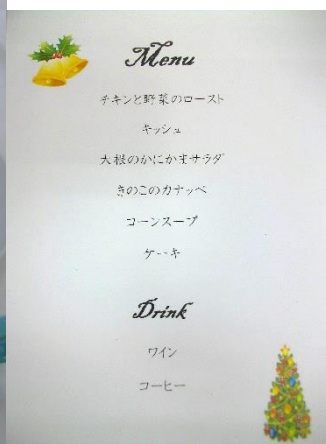 Menu
チキンと野菜のロースト
キッシュ
大根のかにかまサラダ
きのこのカナッペ
コーンスープ
ケーキ
Drink
ワイン
コーヒー